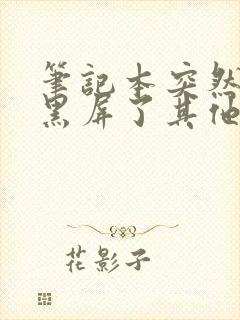 筆記本突然
黑屏了其他
花影子